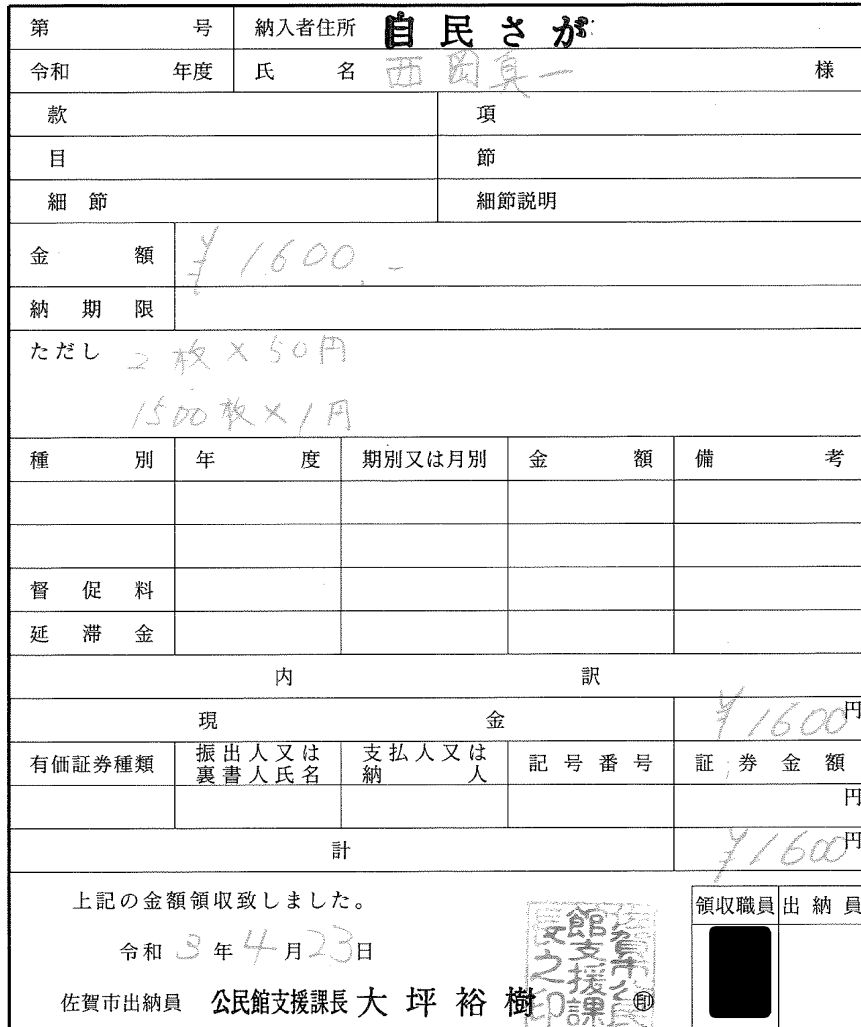 第 号 納入者住所 自民さが
令和 年度 氏 名 西岡真一 様
款 項
目 節
細 節 細節説明
金 額 ¥1600.-
納 期 限
ただし 2枚×50円
1500枚×1円
種 別 年 度 期別又は月別 金 額 備 考
督 促 料
延 滞 金
内 訳
現 金 ¥1600円
有価証券種類 振出人又は裏書人氏名 支払人又は納人 記号番号 証券金額
円
計 ¥1600円
上記の金額領収致しました。
領収職員 出納員
令和 3 年 4 月 23 日
佐賀市出納員 公民館支援課長 大坪裕樹 ㊞
佐賀市公民館支援課長之印